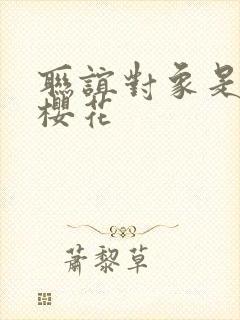 聯誼對象是
櫻花
蕭黎草